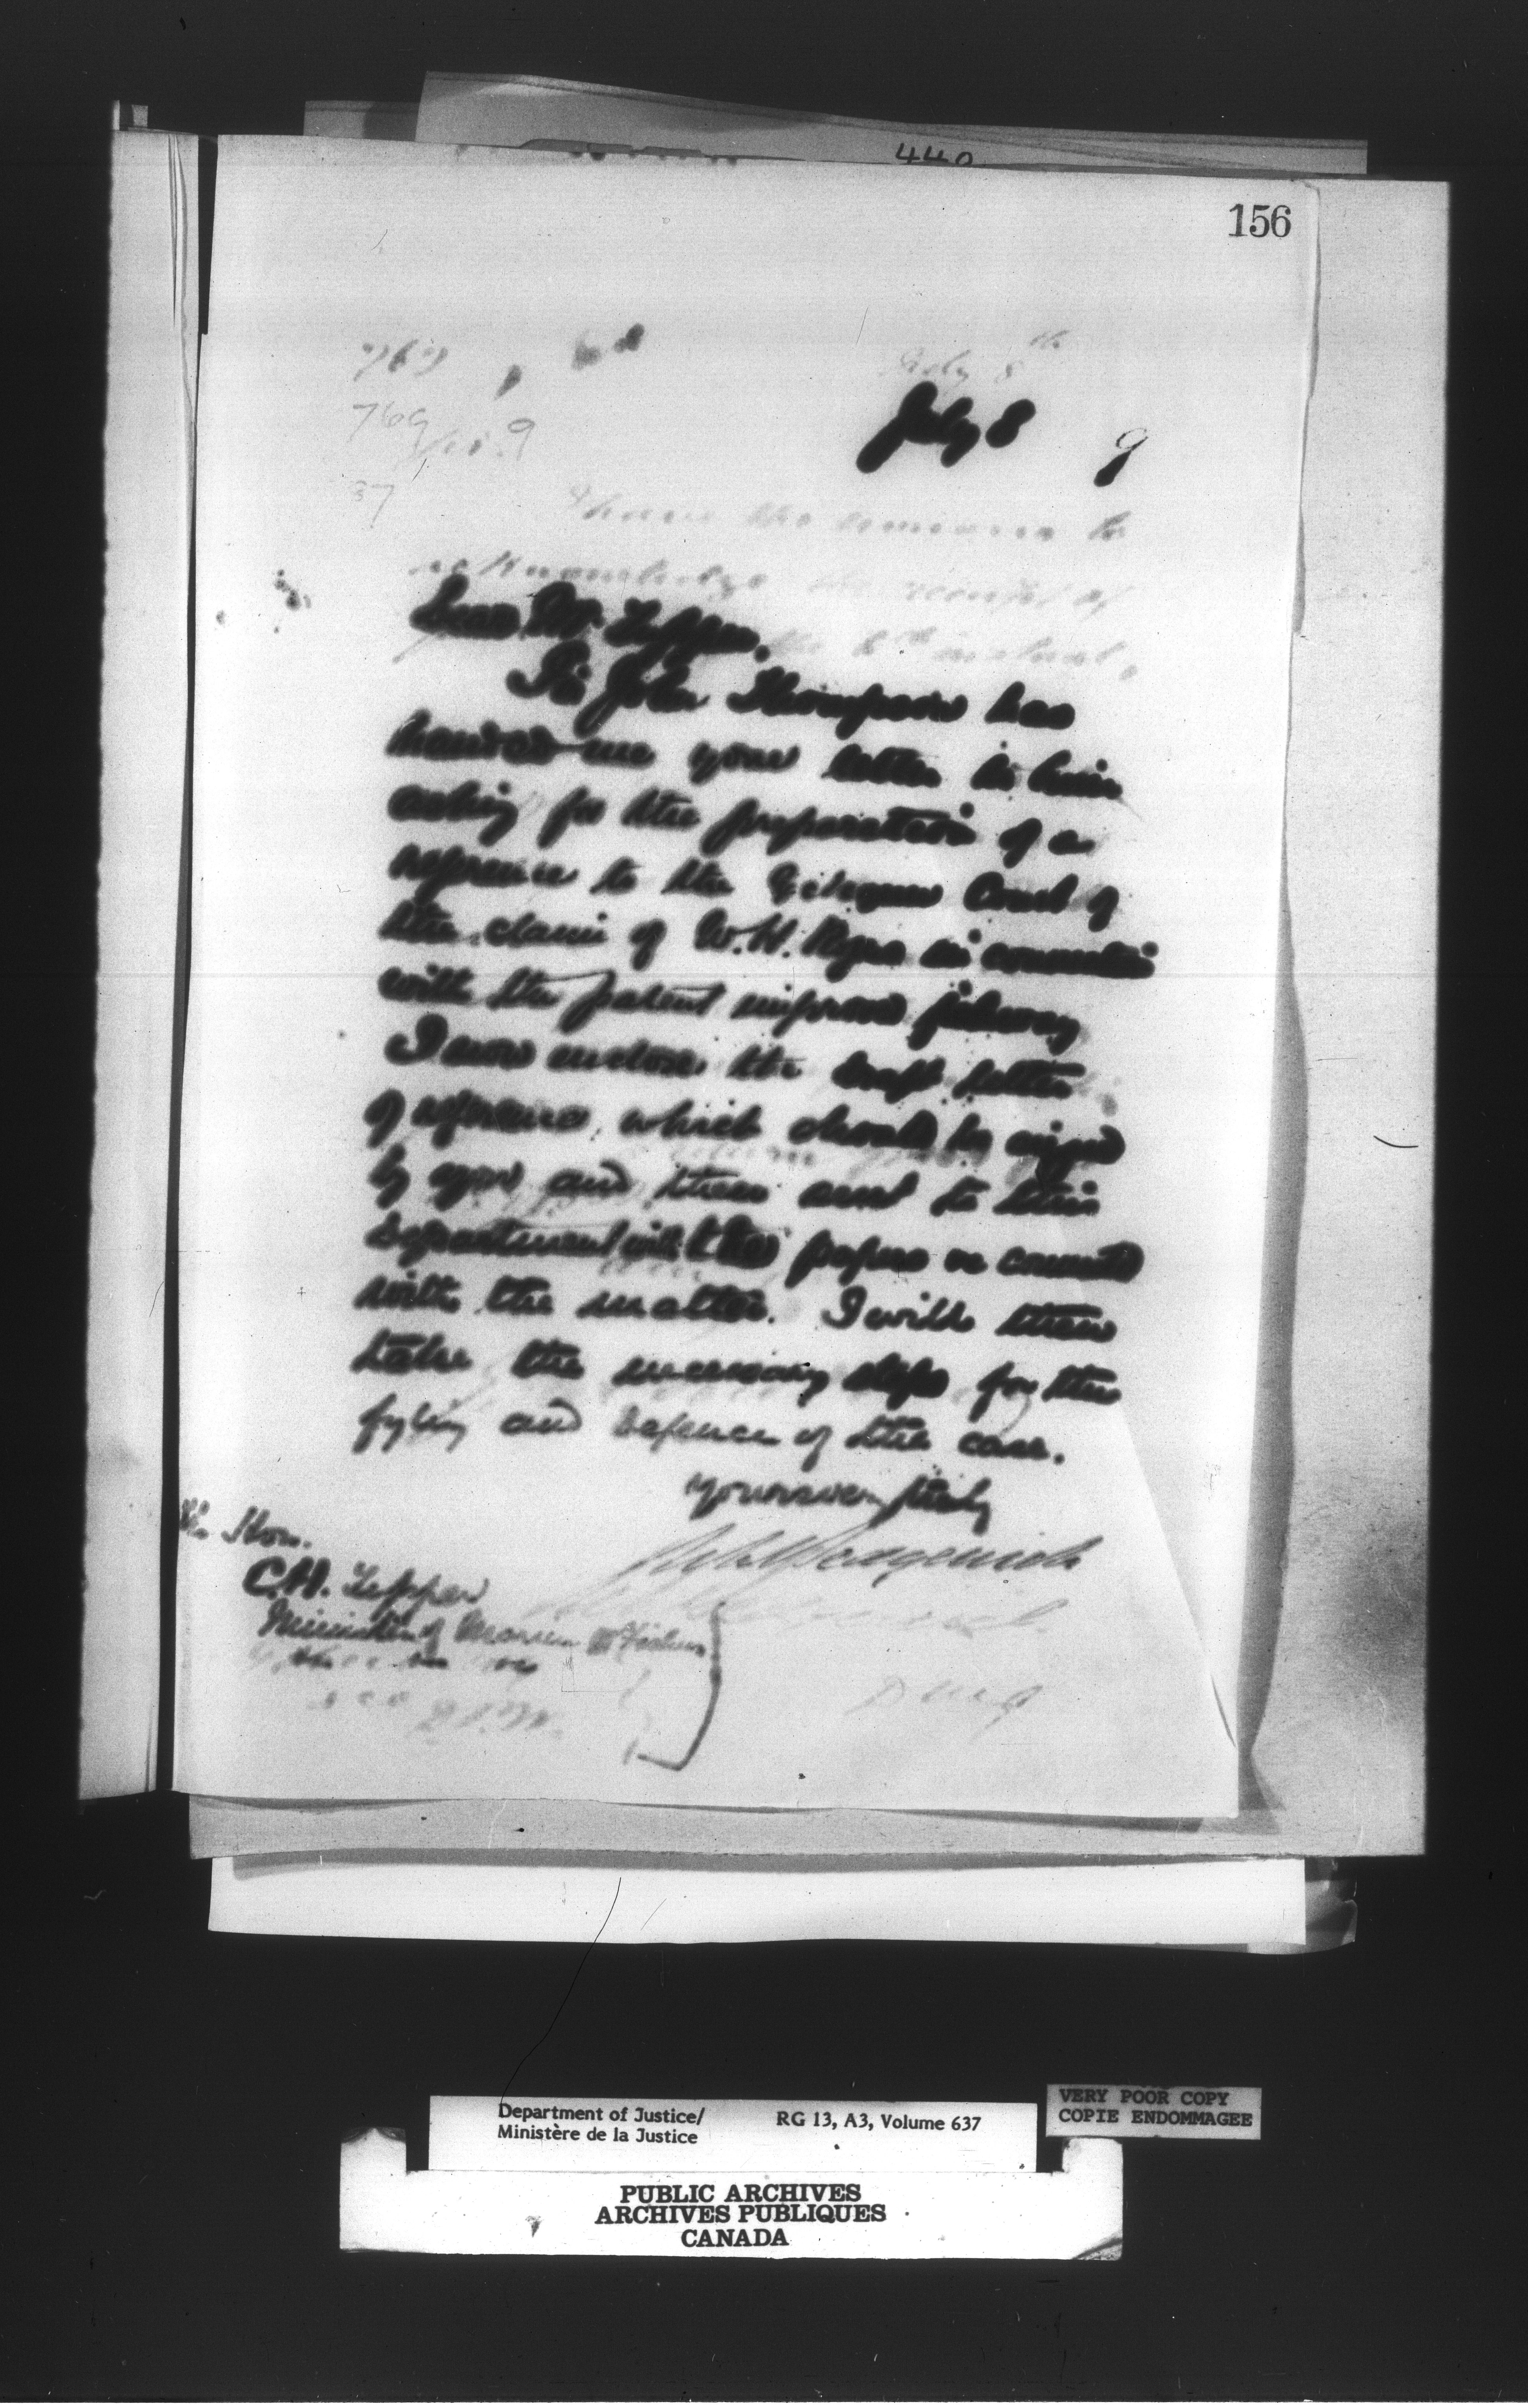 440
156
July 8th
769
July 8 9
769
37
I have the honour to
acknowledge the receipt of
the 6th instant,
Dear Mr Tupper,
Sir John Thompson has
handed me your letter to him
asking for the preparation of a
reference to the Exchequer Court of
the claim of W. H. Rogers in connection
with the patent fishway
I now enclose the draft letter
of reference, which should be signed
by you and then sent to this
department with the papers connected
with the matter. I will then
take the necessary steps for the
fyling and defence of the case.
Yours very truly
The Hon.
C.H. Tupper
Minister of Marine & Fisheries
D M J
Department of Justice/
Ministère de la Justice
RG 13, A3, Volume 637
VERY POOR COPY
COPIE ENDOMMAGEE
PUBLIC ARCHIVES
ARCHIVES PUBLIQUES
CANADA